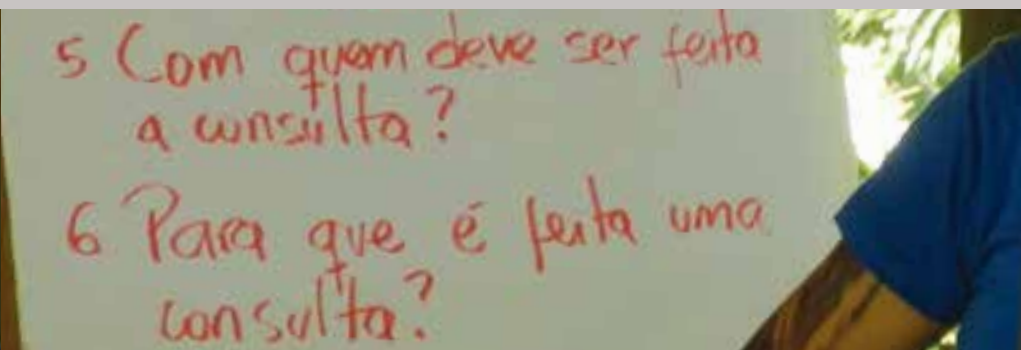 5 Com quem deve ser feita
a consulta?
6 Para que é feita uma
consulta?